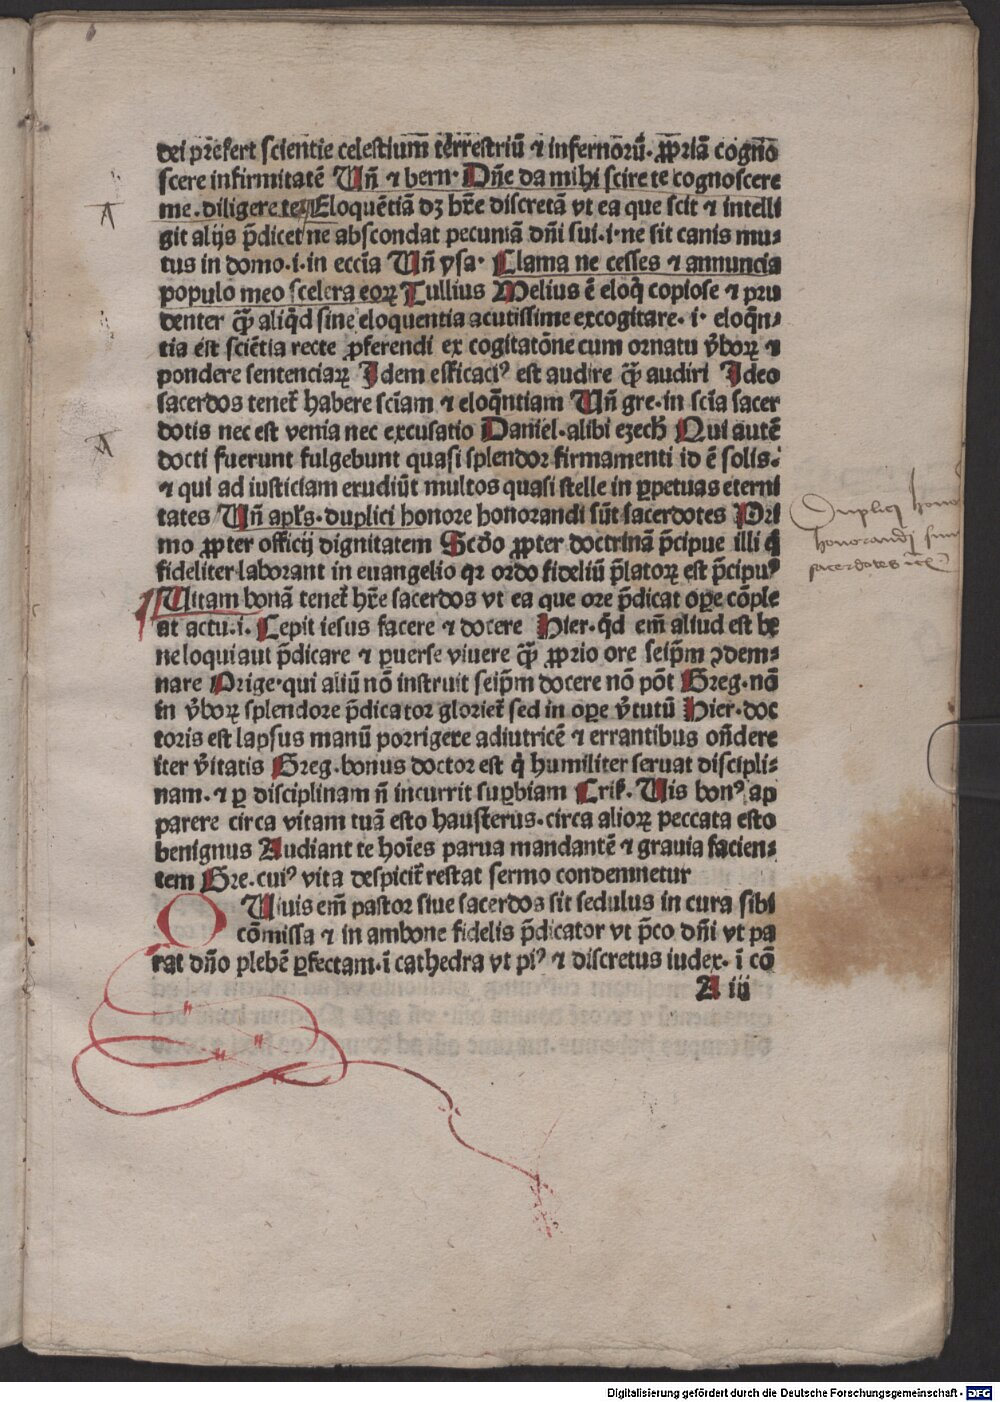 dei p̄refert scientie celestium̄ terrestriū ⁊ infernorū. ꝓpriā cogno
scere infirmitatē Vn̄ ⁊ bern. Dn̄e da mihi scire te cognoscere
me. diligere te. Eloquētiā dꝫ hr̄e discretā vt ea que scit ⁊ intelli
git alijs p̄dicet ne abscondat pecuniā dn̄i sui. i. ne sit canis mu⸗
tus in domo. i. in eccīa Vn̄ ysa. Clama ne cesses ⁊ annuncia
populo meo scelera eoꝝ Tullius Melius ē eloq̄ copiose ⁊ pru
denter q̄ꝫ aliq̄d sine eloquentia acutissime excogitare. i. eloq̄n⸗
tia est sciētia recte ꝓferendi ex cogitatōne cum ornatu v̄boꝝ ⁊
pondere sentenciaꝝ Idem efficaciꝰ est audire q̄ꝫ audiri Ideo
sacerdos tenet̄ habere scīam ⁊ eloq̄ntiam Vn̄ gre. in scīa sacer
dotis nec est venia nec excusatio Daniel. alibi ezech̄ Qui autē
docti fuerunt fulgebunt quasi splendor firmamenti id ē solis.
⁊ qui ad iusticiam erudiūt multos quasi stelle in ꝑpetuas eterni
tates Vn̄ apl̄s. duplici honore honorandi sūt sacerdotes Pri
mo ꝓpter officij dignitatem Scd̄o ꝓpter doctrinā p̄cipue illi q̄
fideliter laborant in euangelio qr ordo fideliū p̄latoꝝ est p̄cipuꝰ
Vitam bonā tenet̄ hr̄e sacerdos vt ea que ore p̄dicat oꝑe cōple
at actu. i. Cepit iesus facere ⁊ docere Hier. q̄d em̄ aliud est be
ne loqui aut p̄dicare ⁊ ꝑuerse viuere q̄ꝫ ꝓprio ore seip̄m ↄdem⸗
nare Orige. qui aliū nō instruit seip̄m docere nō pōt Greg. nō
in v̄boꝝ splendore p̄dicator gloriet̄ sed in oꝑe v̄tutū Hier. doc
toris est lapsus manū porrigere adiutricē ⁊ errantibus on̄dere
iter v̄itatis Greg. bonus doctor est q̄ humiliter seruat discipli⸗
nam. ⁊ ꝑ disciplinam n̄ incurrit suꝑbiam Cris. Vis bonꝰ ap
parere circa vitam tuā esto hausterus. circa alioꝝ peccata esto
benignus Audiant te hoīes parua mandantē ⁊ grauia facien⸗
tem Gre. cuiꝰ vita despicit̄ restat sermo condemnetur
QVuis em̄ pastor siue sacerdos sit sedulus in cura sibi
cōmissa ⁊ in ambone fidelis p̄dicator vt p̄co dn̄i vt pa
rat dn̄o plebē ꝑfectam. ī cathedra vt piꝰ ⁊ discretus iudex. ī cō
A iij
Duplici hono
honorandj sun
sacerdotes
Digitalisierung gefördert durch die Deutsche Forschungsgemeinschaft - DFG